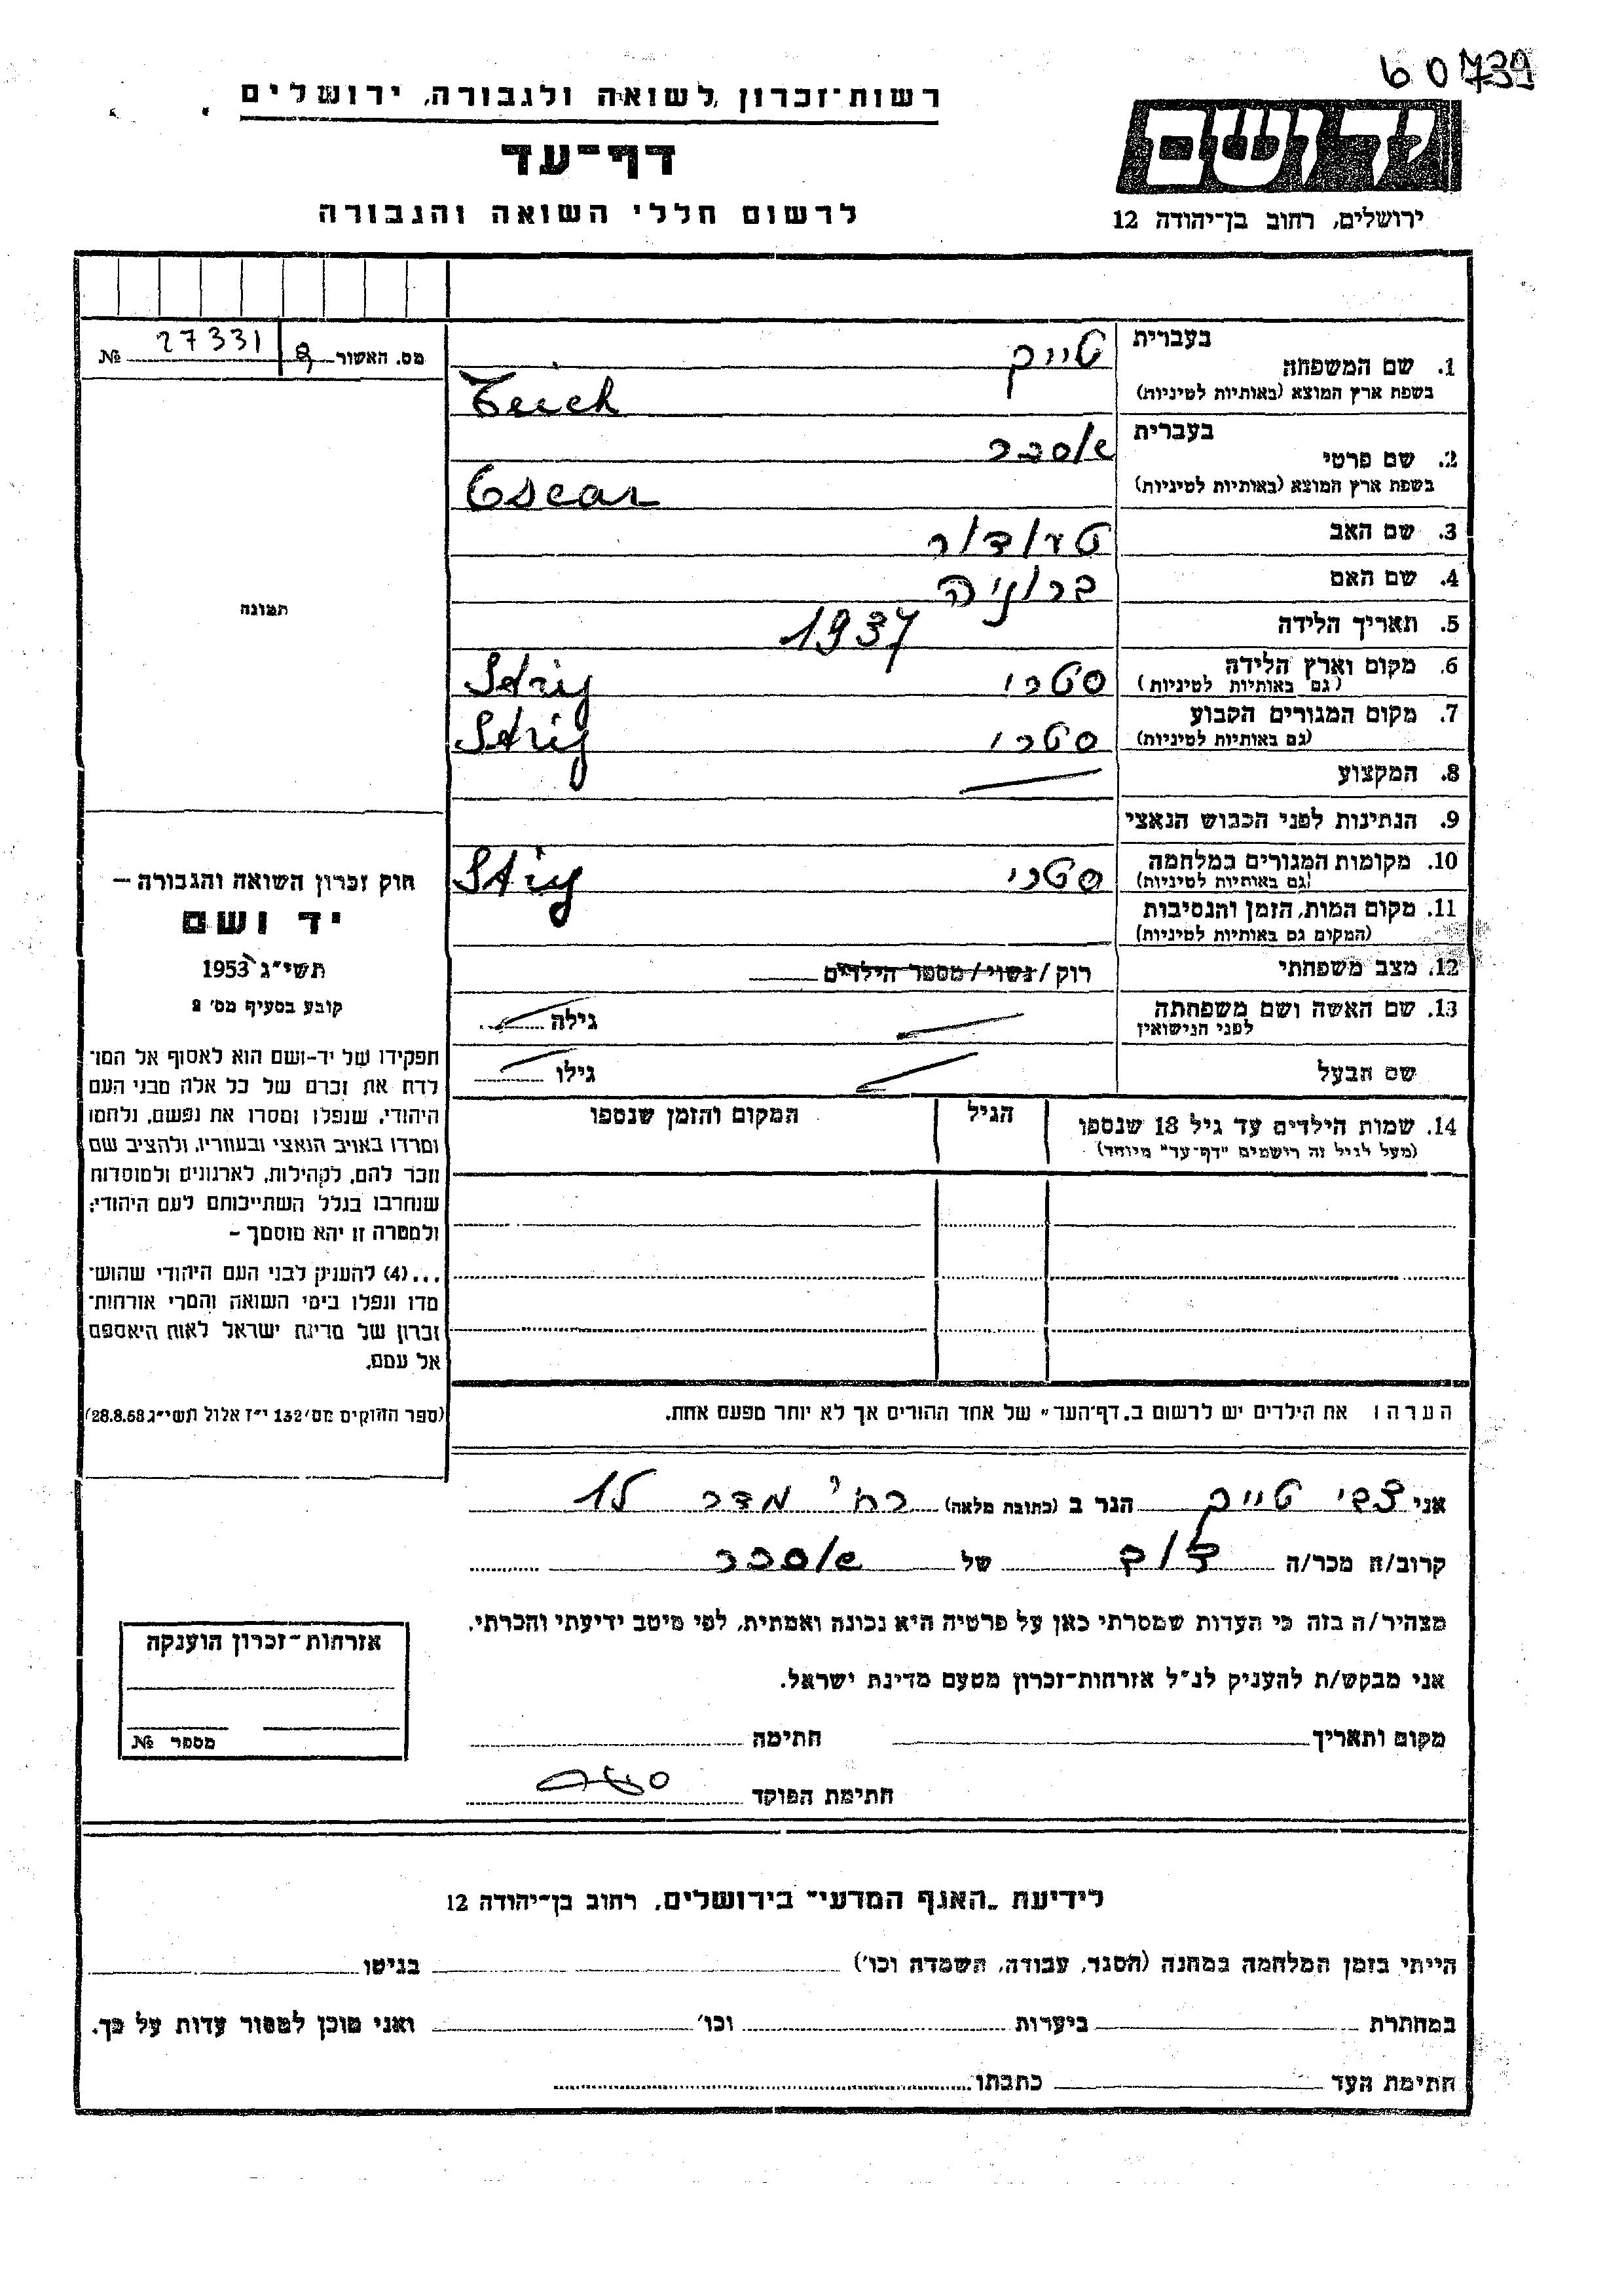 60739
רשות־זכרון לשואה ולגבורה, ירושלים
יד ושם
דף־עד
ירושלים, רחוב בן־יהודה 12
לרשום חללי השואה והגבורה
מס. האשור 8 27331 №
תמונה
1. שם המשפחה בעברית טייך
בשפת ארץ המוצא (באותיות לטיניות) Teich
2. שם פרטי בעברית אוסכר
בשפת ארץ המוצא (באותיות לטיניות) Oscar
3. שם האב
4. שם האם ברוניה
5. תאריך הלידה 1937
6. מקום וארץ הלידה (גם באותיות לטיניות) סטרי Strij
7. מקום המגורים הקבוע (גם באותיות לטיניות) סטרי Strij
8. המקצוע
9. הנתינות לפני הכבוש הנאצי
10. מקומות המגורים במלחמה (גם באותיות לטיניות) סטרי Strij
11. מקום המות, הזמן והנסיבות (המקום גם באותיות לטיניות)
12. מצב משפחתי רוק / נשוי / מספר הילדים
13. שם האשה ושם משפחתה לפני הנישואין גילה
שם הבעל גילו
14. שמות הילדים עד גיל 18 שנספו הגיל המקום והזמן שנספו
(מעל לגיל זה רושמים "דף־עד" מיוחד)
חוק זכרון השואה והגבורה —
יד ושם
תשי"ג 1953
קובע בסעיף מס' 2
תפקידו של יד־ושם הוא לאסוף אל המו־
לדת את זכרם של כל אלה מבני העם
היהודי, שנפלו ומסרו את נפשם, נלחמו
ומרדו באויב הנאצי ובעוזריו, ולהציב שם
וזכר להם, לקהילות, לארגונים ולמוסדות
שנחרבו בגלל השתייכותם לעם היהודי;
ולמטרה זו יהא מוסמך —
...(4) להעניק לבני העם היהודי שהוש־
מדו ונפלו בימי השואה והמרי אזרחות־
זכרון של מדינת ישראל לאות היאספם
אל עמם.
(ספר החוקים מס' 132 י"ז אלול תשי"ג 28.8.53)
הערה: את הילדים יש לרשום ב„דף־העד" של אחד ההורים אך לא יותר מפעם אחת.
אני צבי טייך הגר ב (כתובת מלאה) רח' 15
קרוב/ה מכר/ה דוד של אוסכר
מצהיר/ה בזה כי העדות שמסרתי כאן על פרטיה היא נכונה ואמתית, לפי מיטב ידיעתי והכרתי.
אני מבקש/ת להעניק לנ"ל אזרחות־זכרון מטעם מדינת ישראל.
מקום ותאריך חתימה
חתימת הפוקד
אזרחות־זכרון הוענקה
מספר №
לידיעת „האגף המדעי" בירושלים, רחוב בן־יהודה 12
הייתי בזמן המלחמה במחנה (הסגר, עבודה, השמדה וכו') בגיטו
במחתרת ביערות וכו' ואני מוכן למסור עדות על כך.
חתימת העד כתבתו